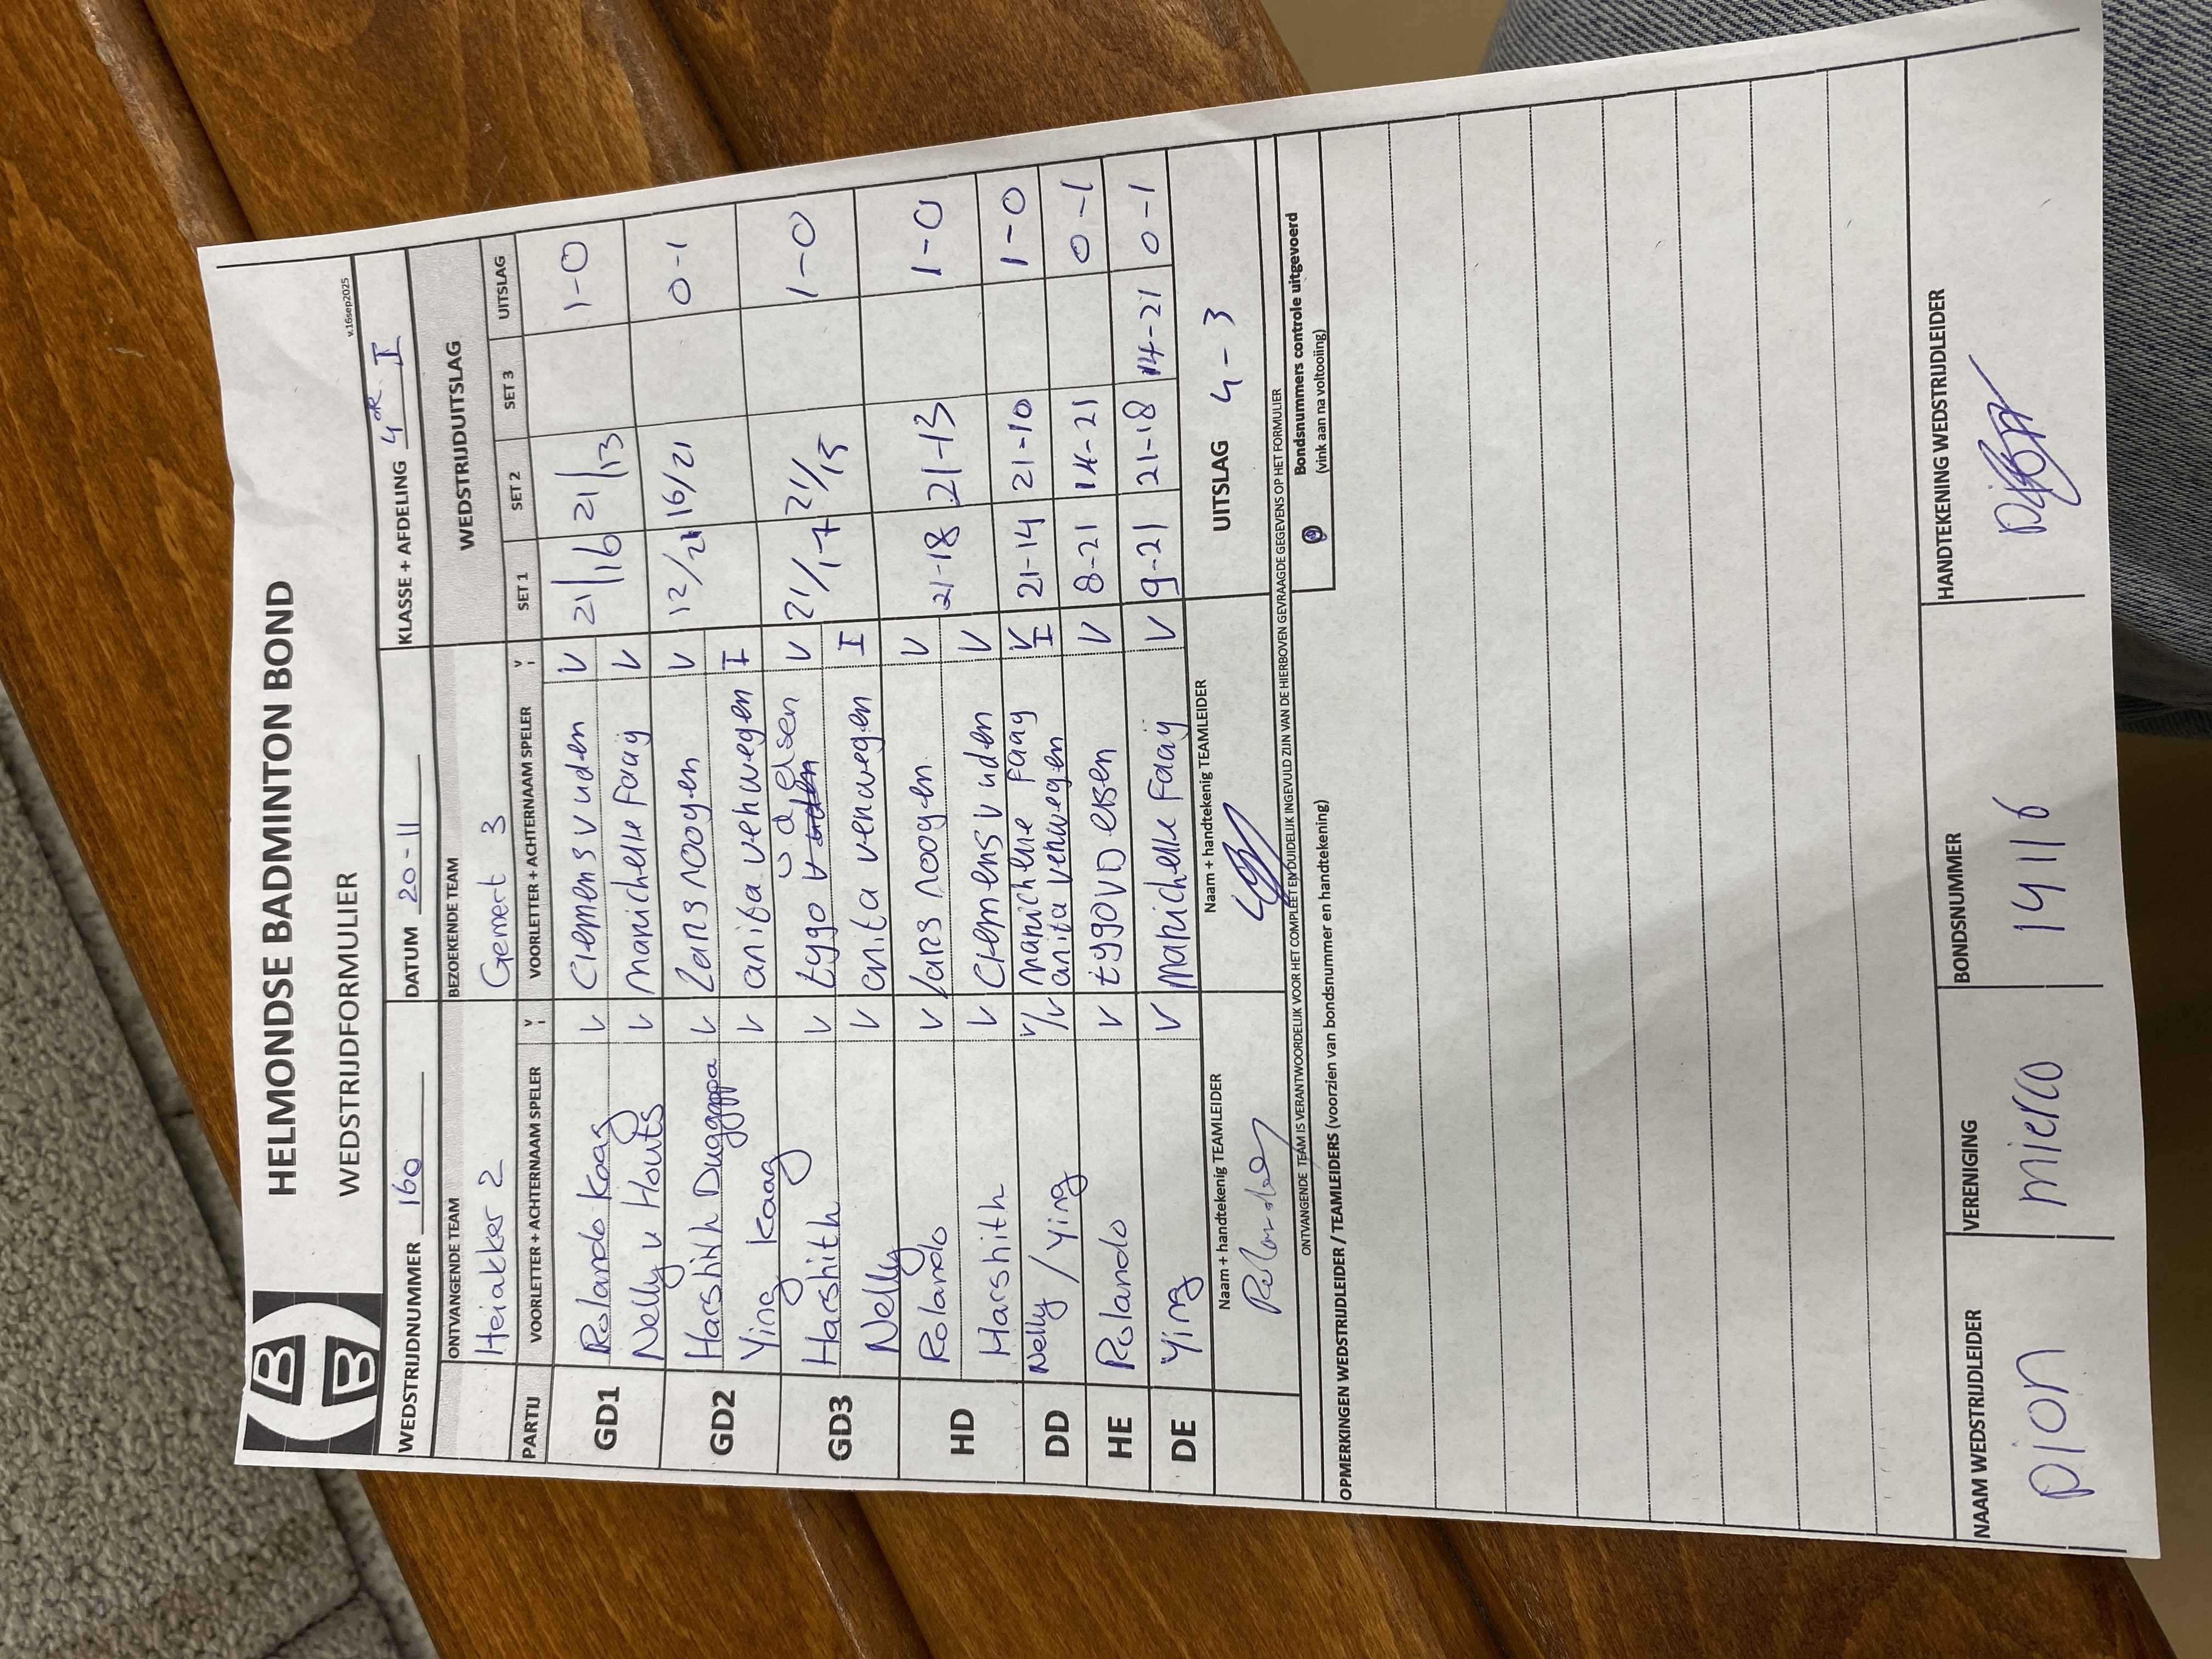 HELMONDSE BADMINTON BOND
WEDSTRIJDFORMULIER
v.16sep2025
WEDSTRIJDNUMMER 160 DATUM 20-11 KLASSE + AFDELING 4de I
ONTVANGENDE TEAM BEZOEKENDE TEAM WEDSTRIJDUITSLAG
Heiakker 2 Gemert 3
PARTIJ VOORLETTER + ACHTERNAAM SPELER V I VOORLETTER + ACHTERNAAM SPELER V I SET 1 SET 2 SET 3 UITSLAG
GD1 Rolando Kaag V Clemens v uden V 21/16 21/13 1-0
Nelly v Houts V Marichelle Faaij V
GD2 Harshith Duggappa V Lars rooyen V 12/21 16/21 0-1
Ying Kaag V anita verwegen I
GD3 Harshith V tygo v d elsen V 21/17 21/15 1-0
Nelly V anita verwegen I
HD Rolando V lars rooyen V 21-18 21-13 1-0
Harshith V Clemens v uden V
DD Nelly / Ying V/V Marichelle Faaij V 21-14 21-10 1-0
anita verwegen I
HE Rolando V tygo v D elsen V 8-21 14-21 0-1
DE Ying V Marichelle Faaij V 9-21 21-18 14-21 0-1
Naam + handtekenig TEAMLEIDER Naam + handtekenig TEAMLEIDER UITSLAG 4-3
Rolando
ONTVANGENDE TEAM IS VERANTWOORDELIJK VOOR HET COMPLEET EN DUIDELIJK INGEVULD ZIJN VAN DE HIERBOVEN GEVRAAGDE GEGEVENS OP HET FORMULIER
Bondsnummers controle uitgevoerd
(vink aan na voltooiing)
OPMERKINGEN WEDSTRIJDLEIDER / TEAMLEIDERS (voorzien van bondsnummer en handtekening)
NAAM WEDSTRIJDLEIDER VERENIGING BONDSNUMMER HANDTEKENING WEDSTRIJDLEIDER
pion mierco 14116